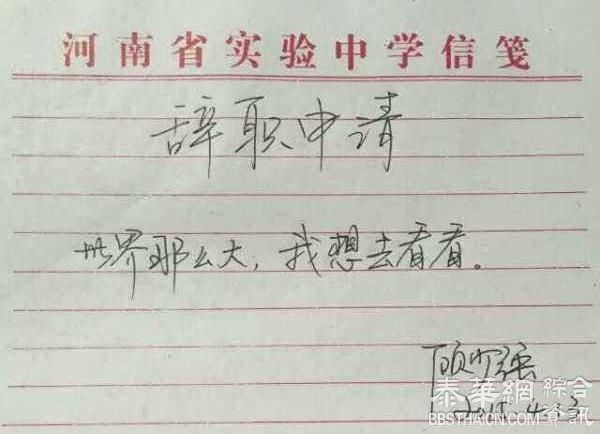 河南省实验中学信笺
辞职申请
世界那么大，我想去看看。
顾少强
2015.4.13
泰華網 綜合資訊
BBSTHAICN.COM